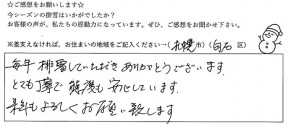 ☆ご感想をお願いします☆
今シーズンの排雪はいかがでしたか？
お客様の声が、私たちの原動力になっています。ぜひ、ご感想をお聞かせ下さい。
※差支えなければ、お住まいの地域をご記入ください…(札幌市)(白石区)
毎年排雪していただきありがとうございます。
とても丁寧で除後も安心しています。
来年もよろしくお願い致します